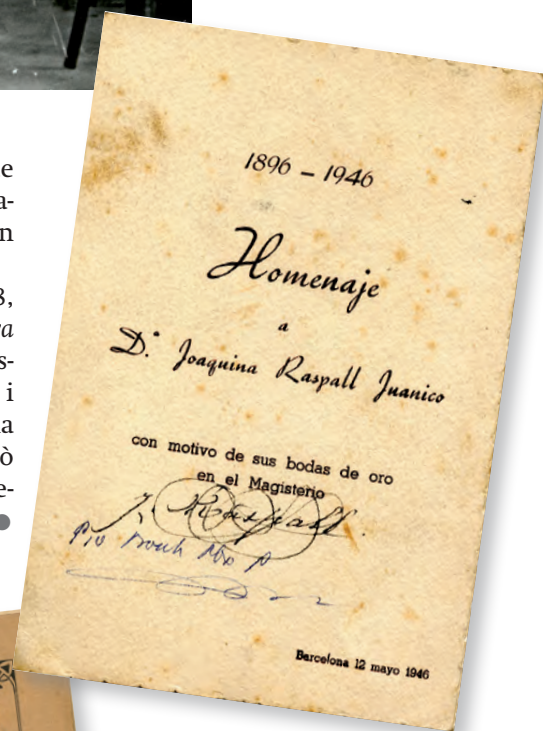 e
a-
n
8,
va
s-
i
a
ò
e-
1896 – 1946
Homenaje
a
D.ª Joaquina Raspall Juanico
con motivo de sus bodas de oro
en el Magisterio
J. Raspall.
Barcelona 12 mayo 1946